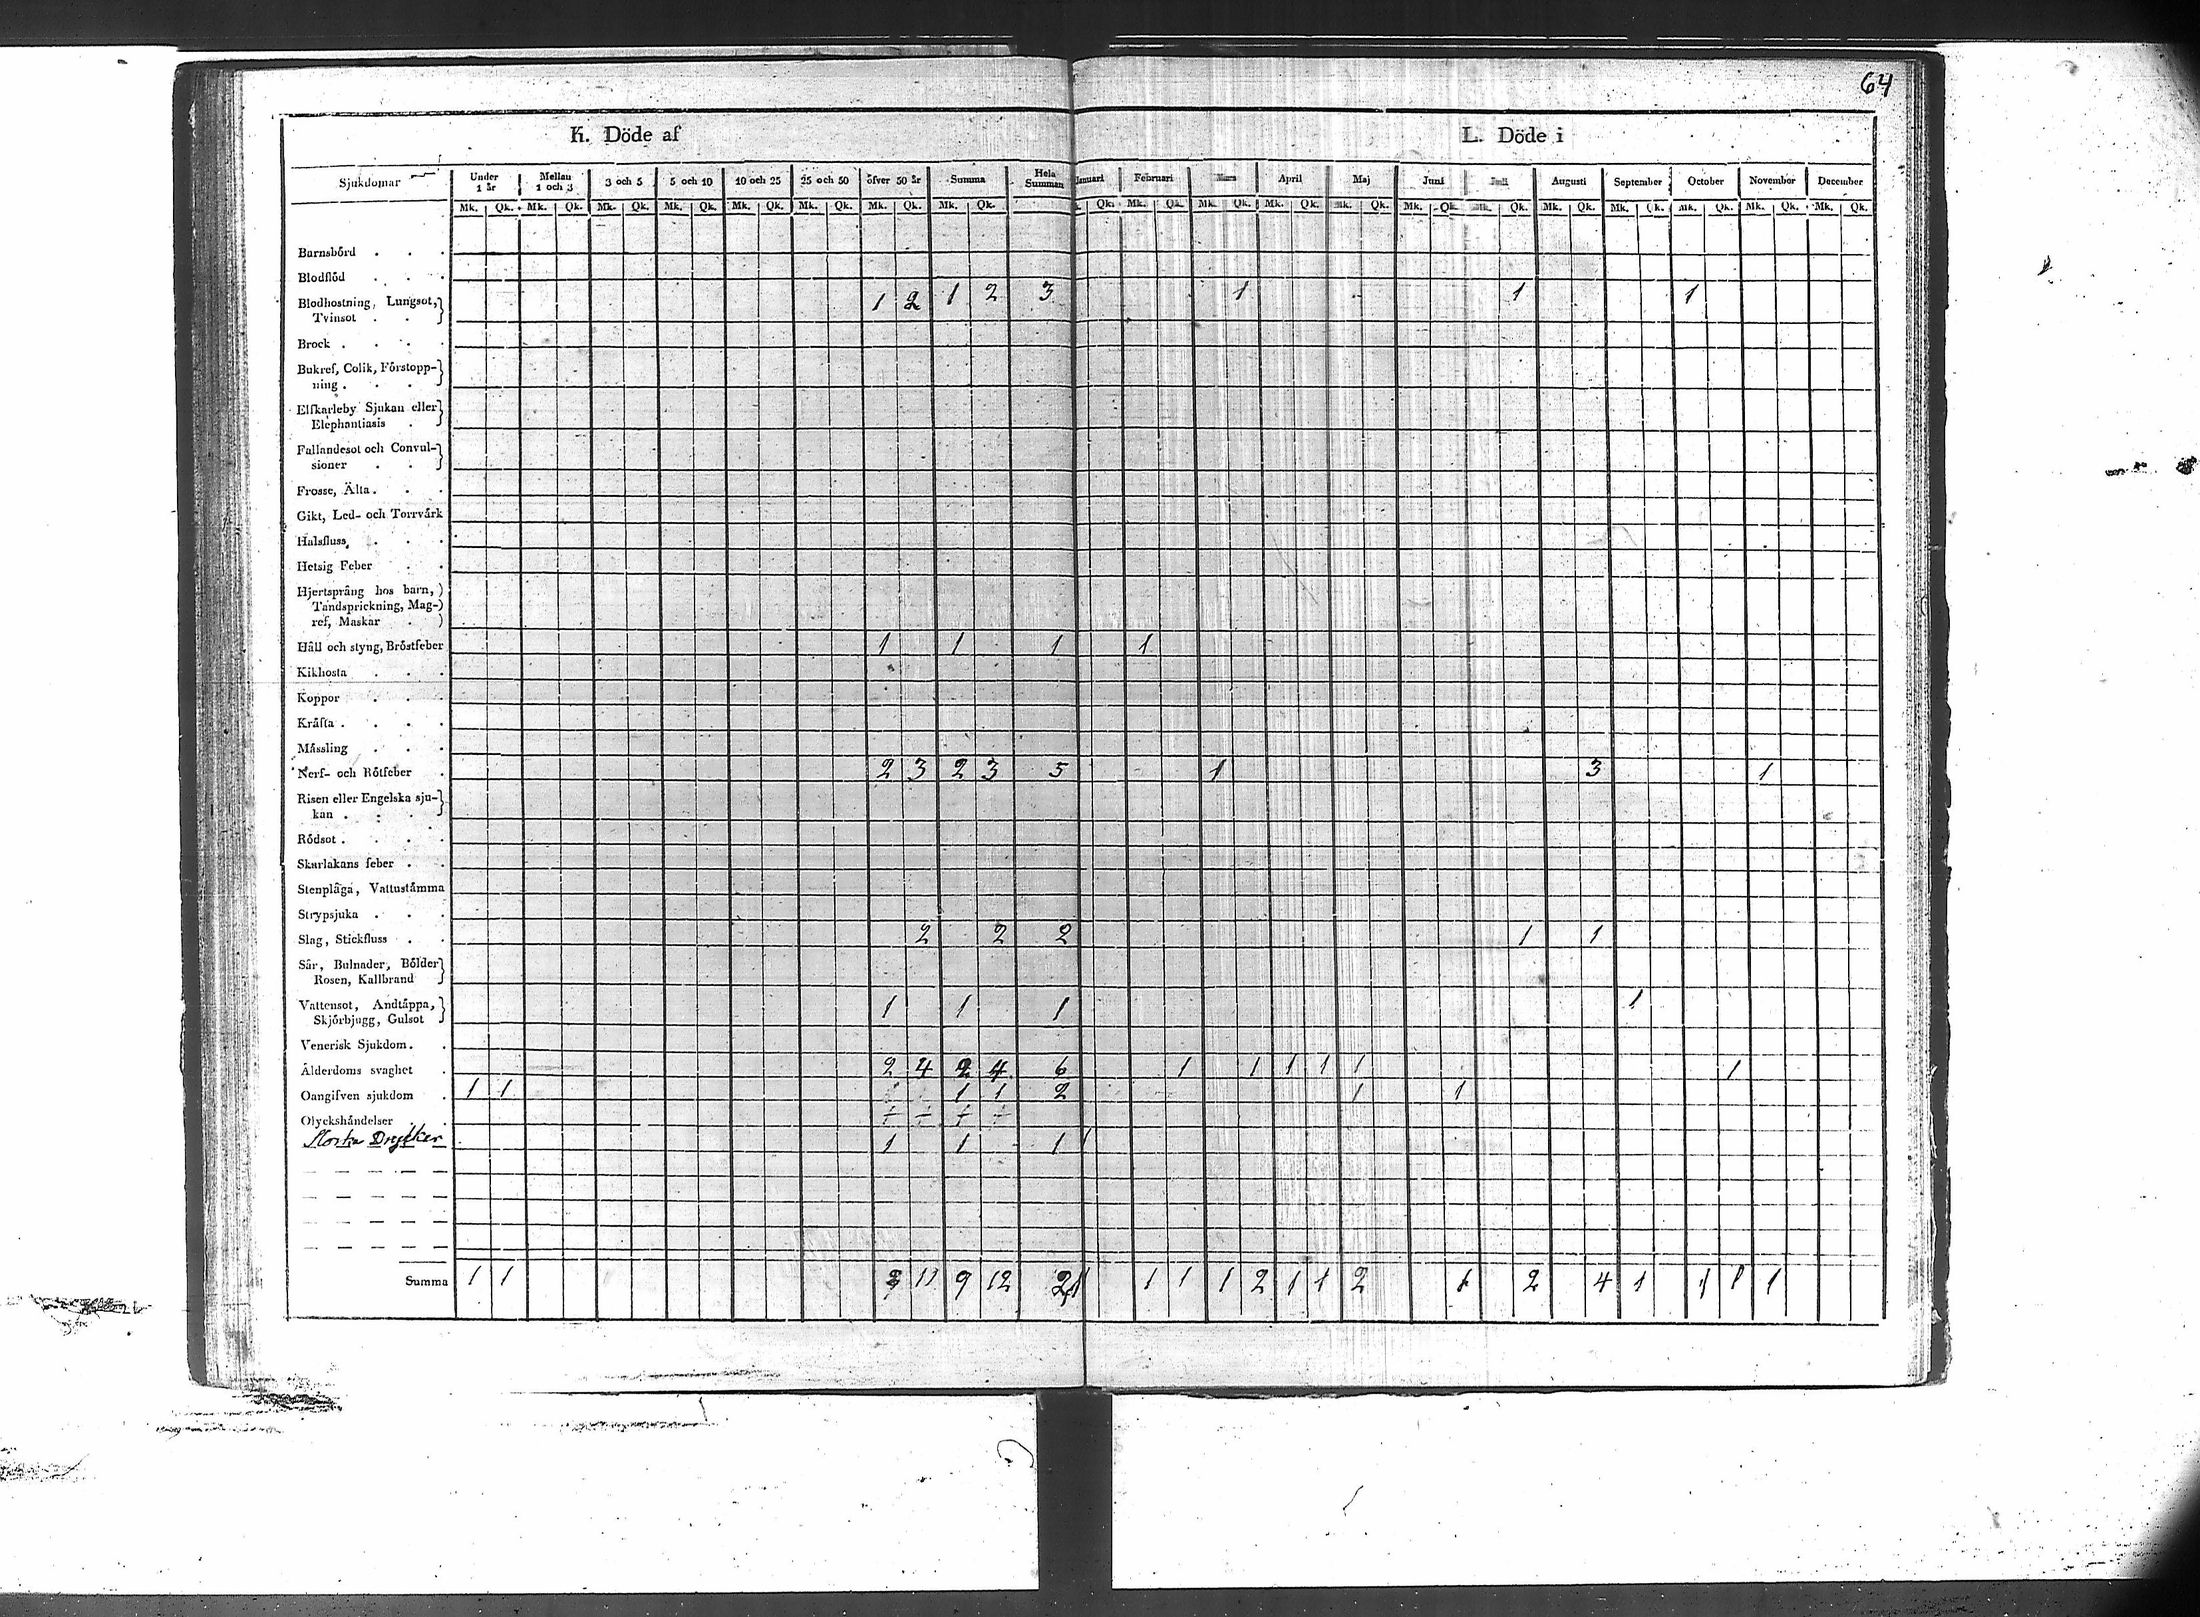 64
K. Döde af
L. Döde i
Sjukdomar Under 1 år Mellan 1 och 3 3 och 5 5 och 10 10 och 25 25 och 50 öfver 50 år Summa Hela Summan Januari Februari Mars April Maj Juni Juli Augusti September October November December
Mk. Qk. Mk. Qk. Mk. Qk. Mk. Qk. Mk. Qk. Mk. Qk. Mk. Qk. Mk. Qk. k. Qk. Mk. Qk. Mk. Qk. Mk. Qk. Mk. Qk. Mk. Qk. Mk. Qk. Mk. Qk. Mk. Qk. Mk. Qk. Mk. Qk. Mk. Qk.
Barnsbörd
Blodflöd
Blodhostning, Lungsot, 1 2 1 2 3 1 1 1
Tvinsot
Brock
Bukref, Colik, Förstopp-
ning
Elfkarleby Sjukan eller
Elephantiasis
Fallandesot och Convul-
sioner
Frosse, Älta
Gikt, Led- och Torrvärk
Halsfluss
Hetsig Feber
Hjertsprång hos barn,
Tandsprickning, Mag-
ref, Maskar
Håll och styng, Bröstfeber 1 1 1 1
Kikhosta
Koppor
Kräfta
Mässling
Nerf- och Rötfeber 2 3 2 3 5 1 3 1
Risen eller Engelska sju-
kan
Rödsot
Skarlakans feber
Stenplåga, Vattustämma
Strypsjuka
Slag, Stickfluss 2 2 2 1 1
Sår, Bulnader, Bölder
Rosen, Kallbrand
Vattensot, Andtäppa, 1 1 1 1
Skjörbjugg, Gulsot
Venerisk Sjukdom
Ålderdoms svaghet 2 4 2 4 6 1 1 1 1 1 1
Oangifven sjukdom 1 1 1 1 2 1 1
Olyckshändelser
Starka Drycker 1 1 1 1
Summa 1 1 11 9 12 21 1 1 1 1 2 1 1 2 1 2 4 1 1 1 1